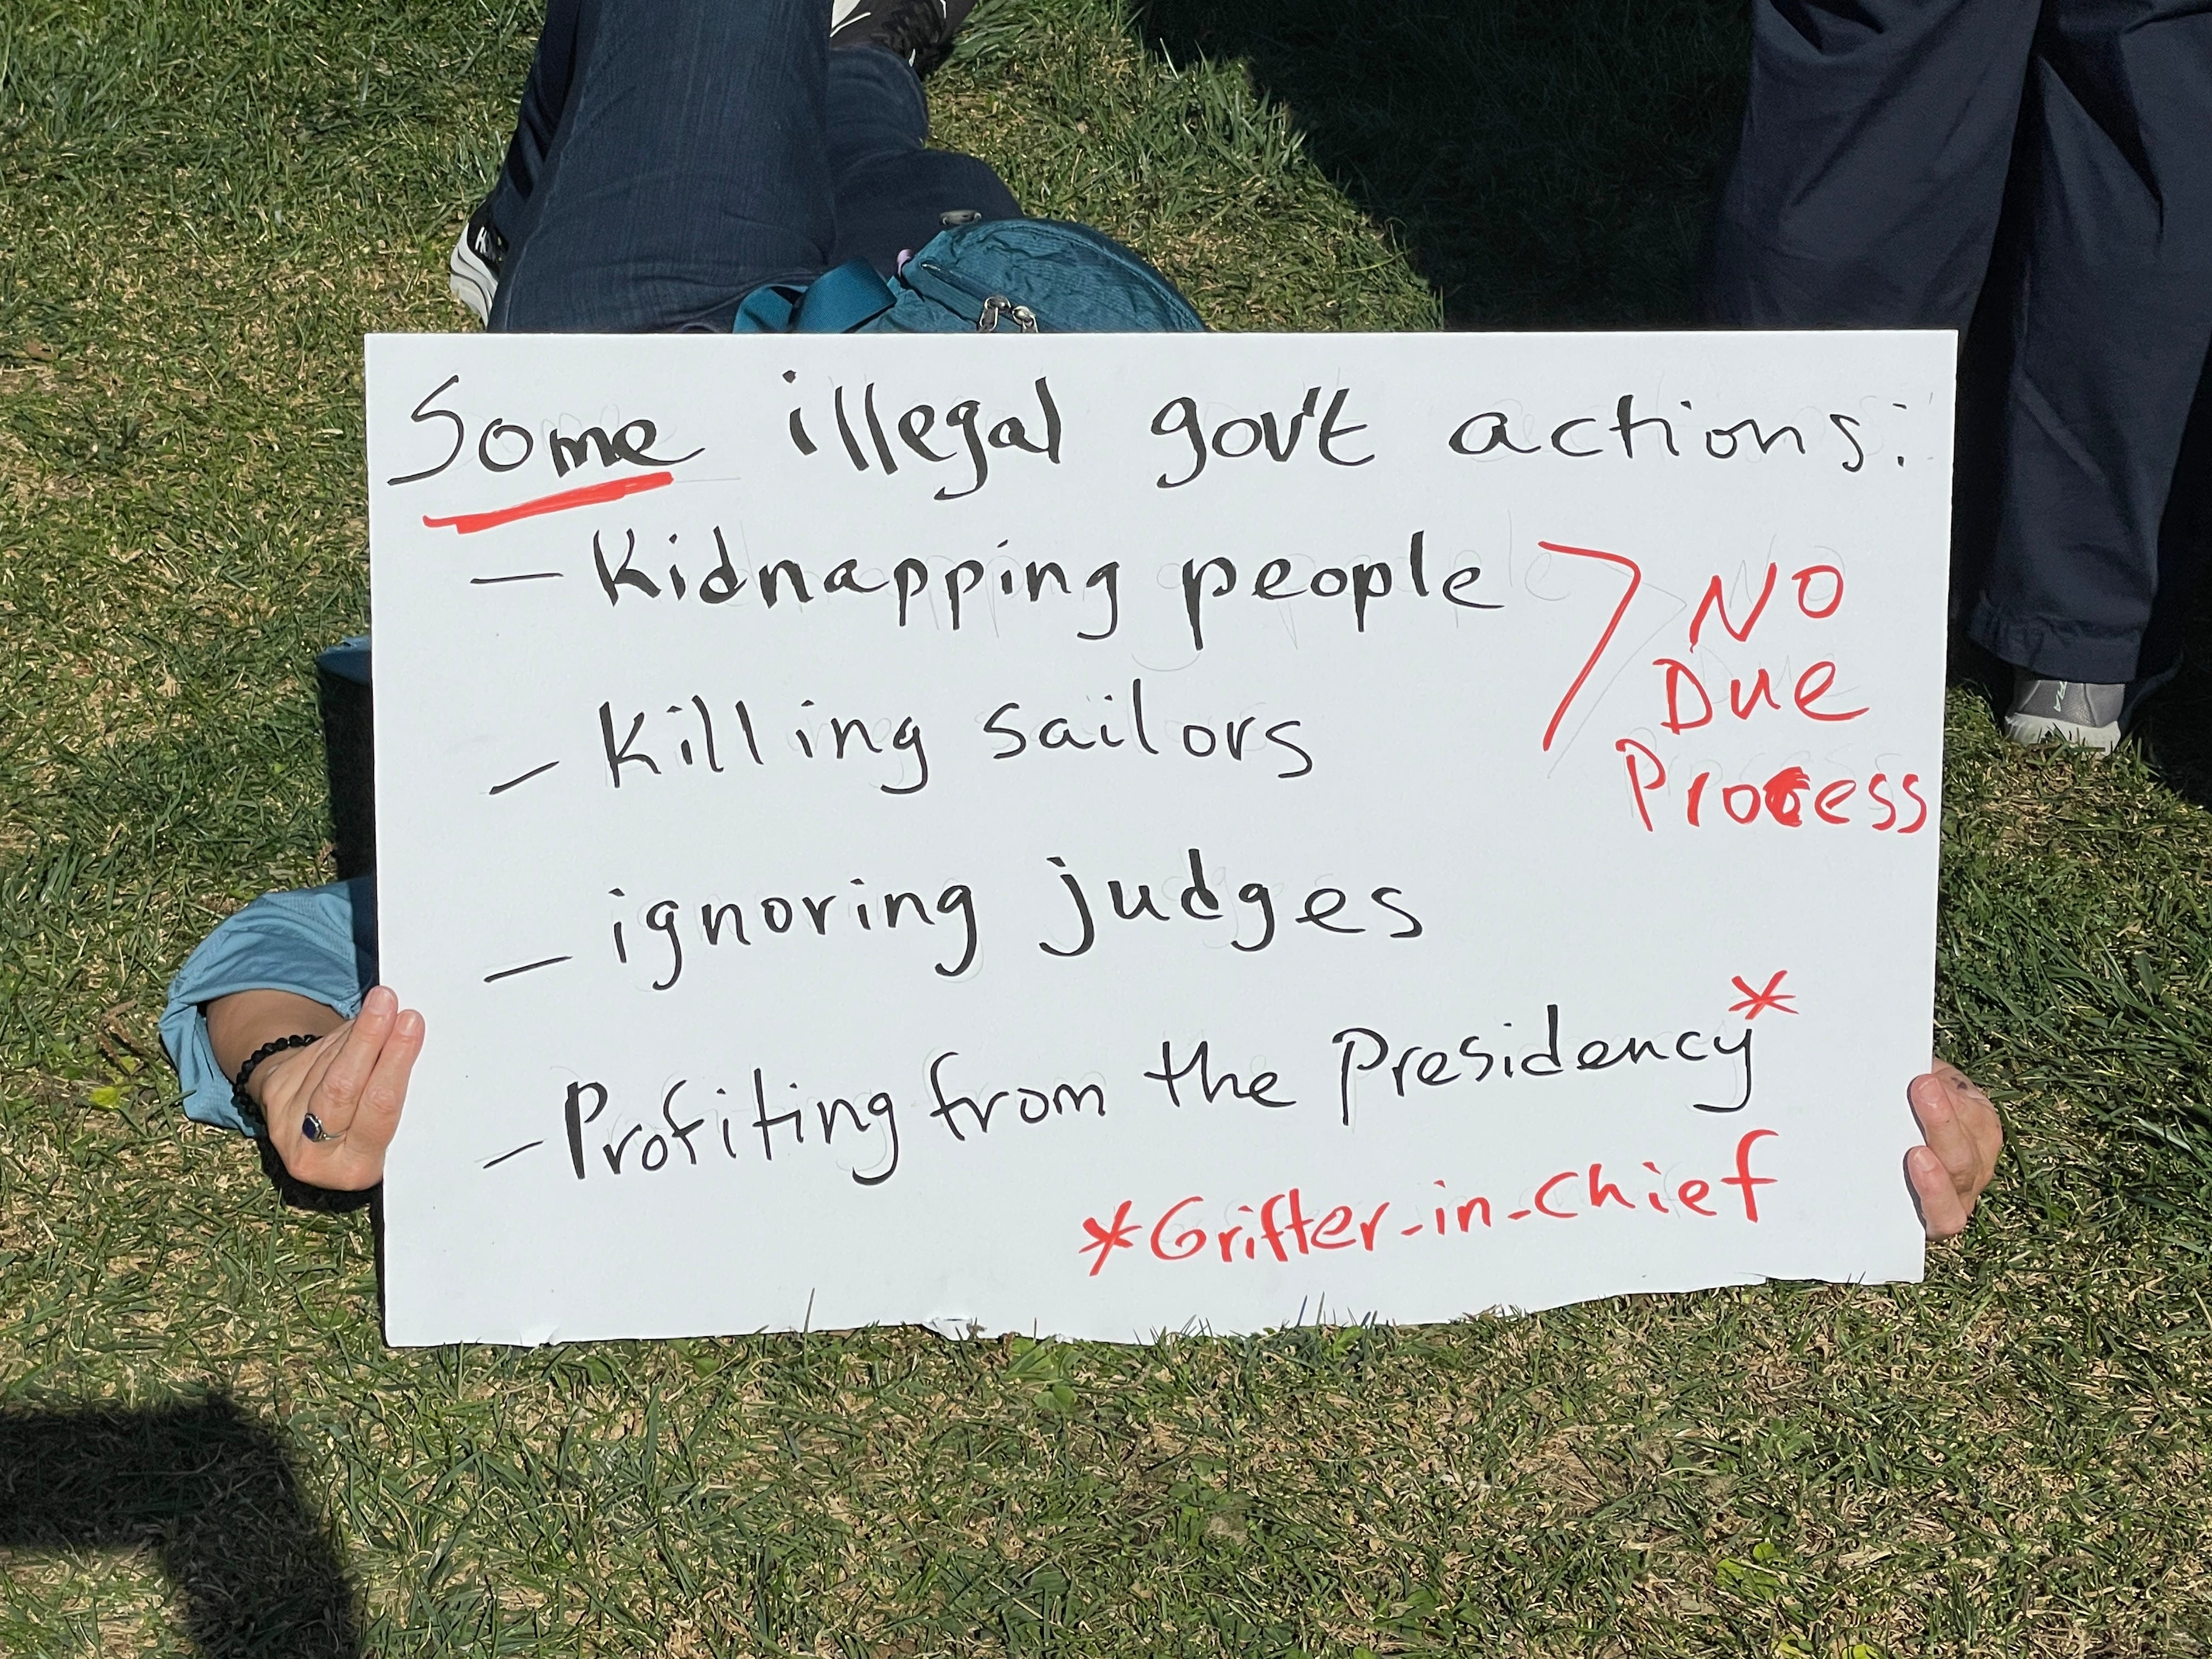 Some illegal gov't actions:
— Kidnapping people
— Killing sailors
NO
Due
Process
— ignoring judges
— Profiting from the Presidency*
*Grifter-in-chief